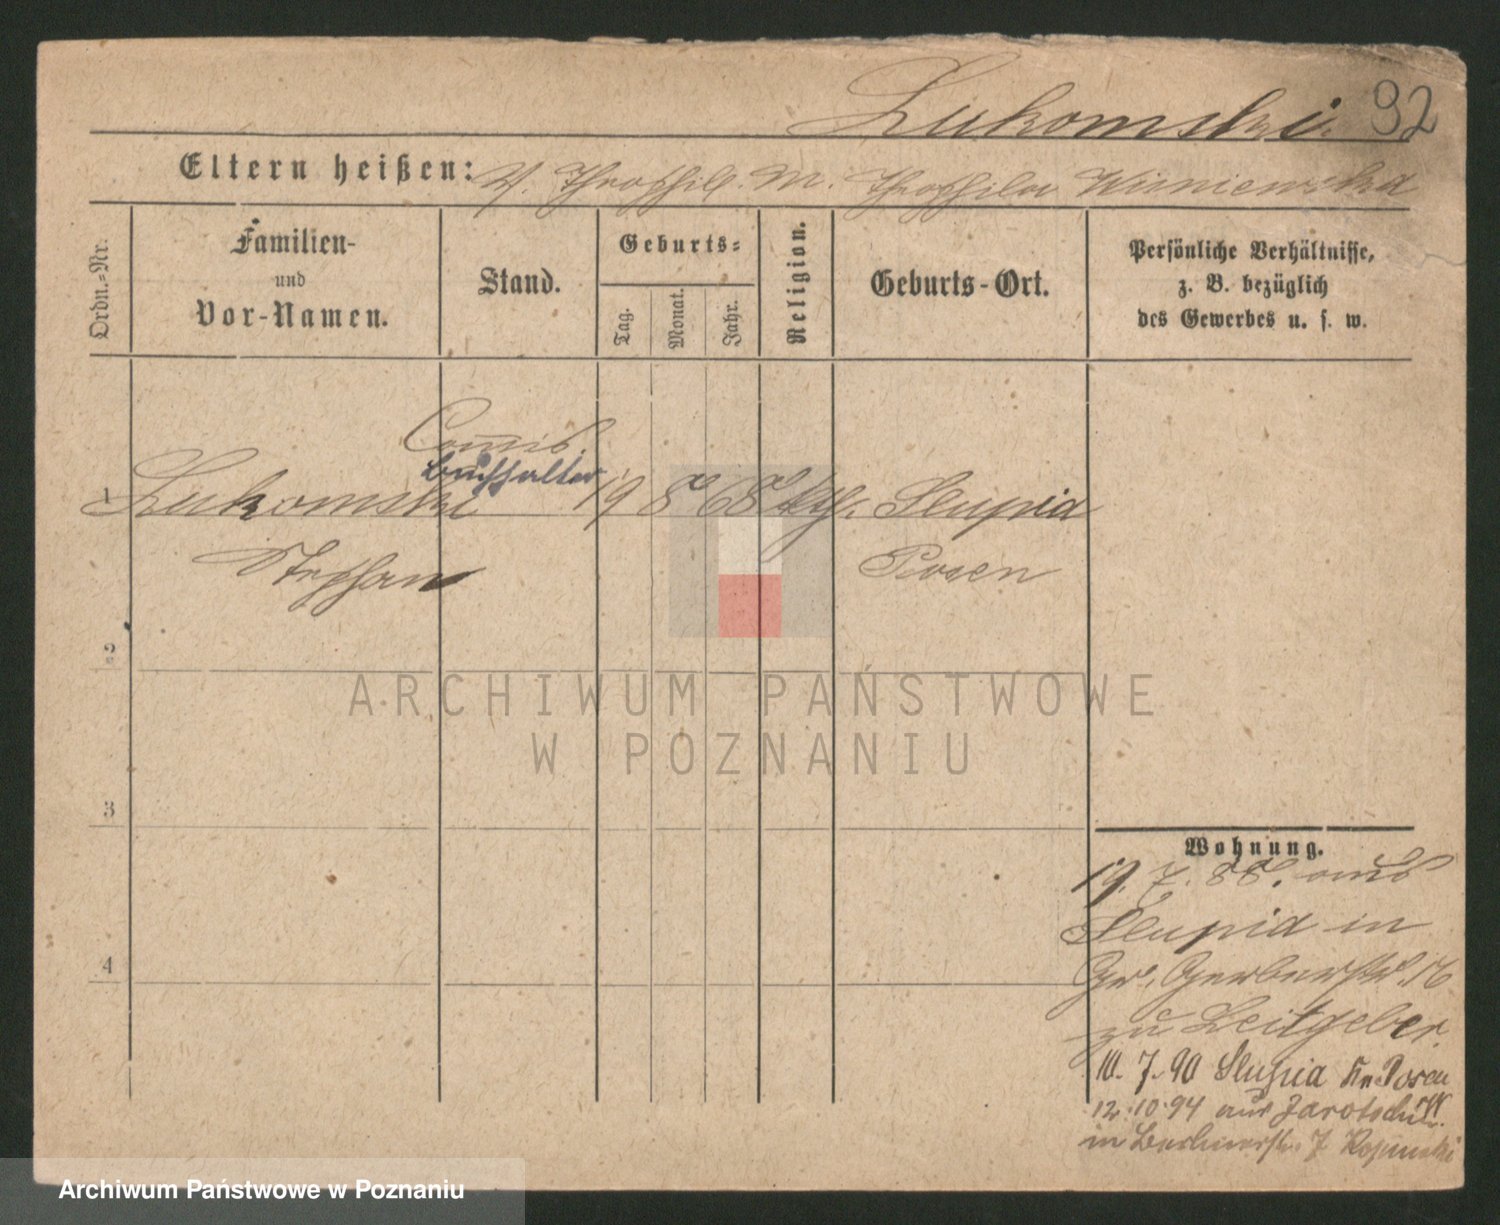 Lukomski. 92
Eltern heißen: V. Theophil. M. Theophila Wisniewska
Ordn.-Nr.
Familien-
und
Vor-Namen.
Stand.
Geburts-
Tag.
Monat.
Jahr.
Religion.
Geburts-Ort.
Persönliche Verhältnisse,
z. B. bezüglich
des Gewerbes u. s. w.
Comis
Buchhalter
1 Lukomski 19 8 68 kth. Slupia
Stephan Posen
2
ARCHIWUM PAŃSTWOWE
W POZNANIU
3
Wohnung.
19. 7. 88. aus
Slupia in
Gr. Gerberstr. 16
zu Leitgeber.
4
10. 7. 90 Slupia Kr. Posen
12.10.94 aus Jarotschin
in 7
Archiwum Państwowe w Poznaniu